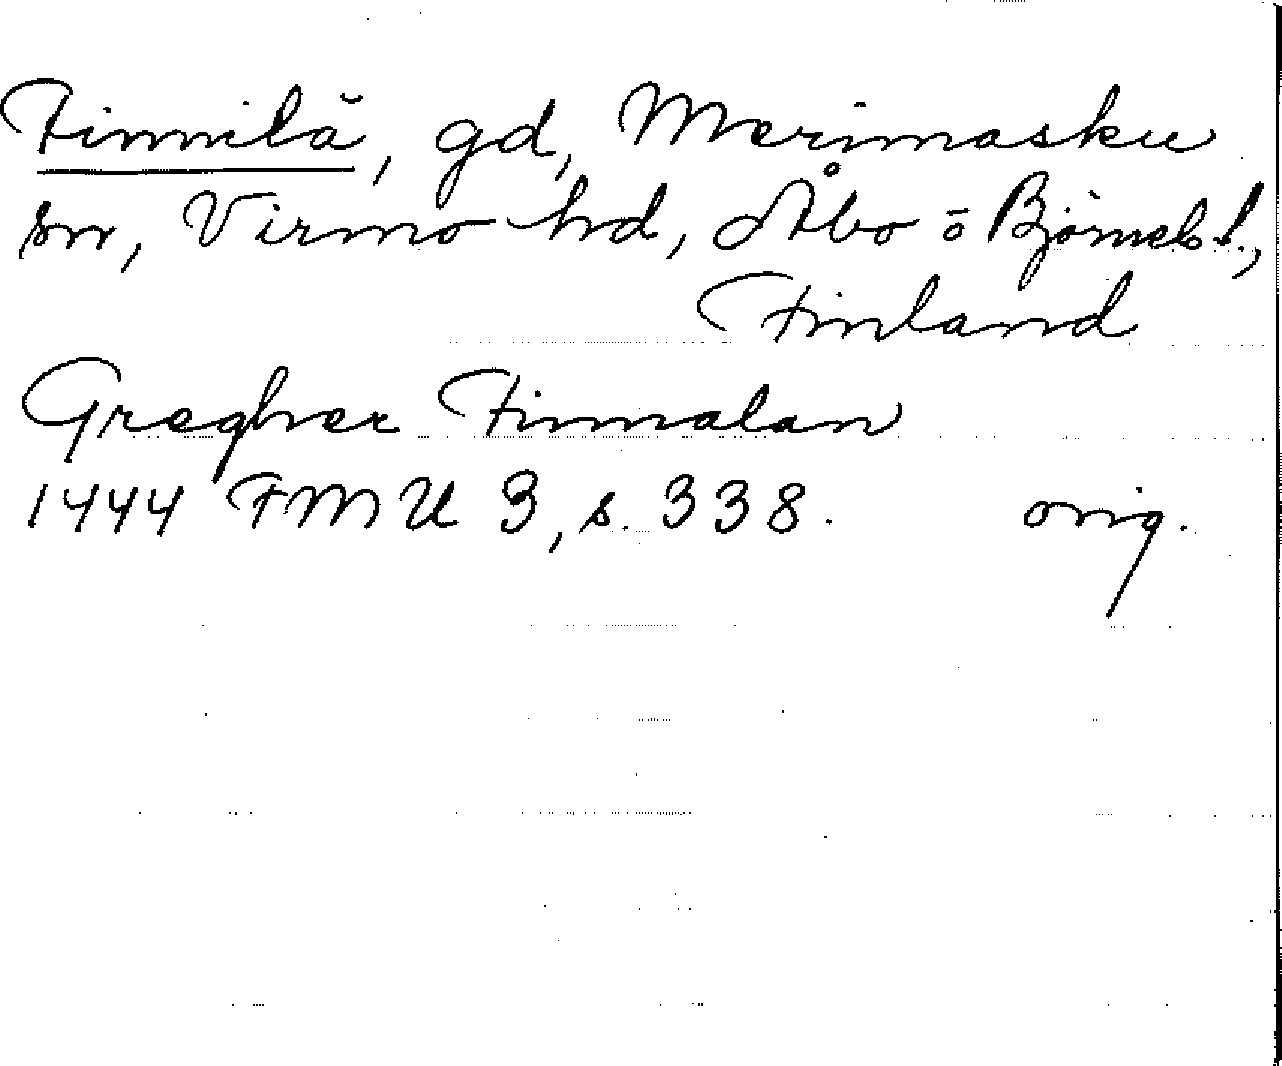 Finnilä, gd, Merimasku
sn, Virmo hd, Åbo o Björneb l.,
Finland
Gregher Finnalan
1444 FMU 3, s. 338. orig.